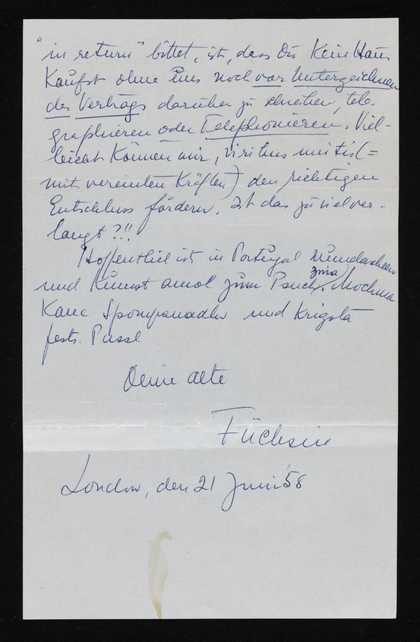 "in return" bittet, ist, dass Du kein Haus
Kaufst ohne Uns noch vor Unterzeichnen
des Vertrags darüber zu schreiben, tele-
graphieren oder Telephonieren. Viel-
leicht können wir, viribus unitis (=
mit vereinten Kräften) den richtigen
Entschluss fördern. Ist das zu viel ver-
langt?!!
Hoffentlich ist in Portugal
und kimmst amol zum
Kane und Krigsta
fests. Pussl
Deine alte
Füchsin
London, den 21 Juni '58